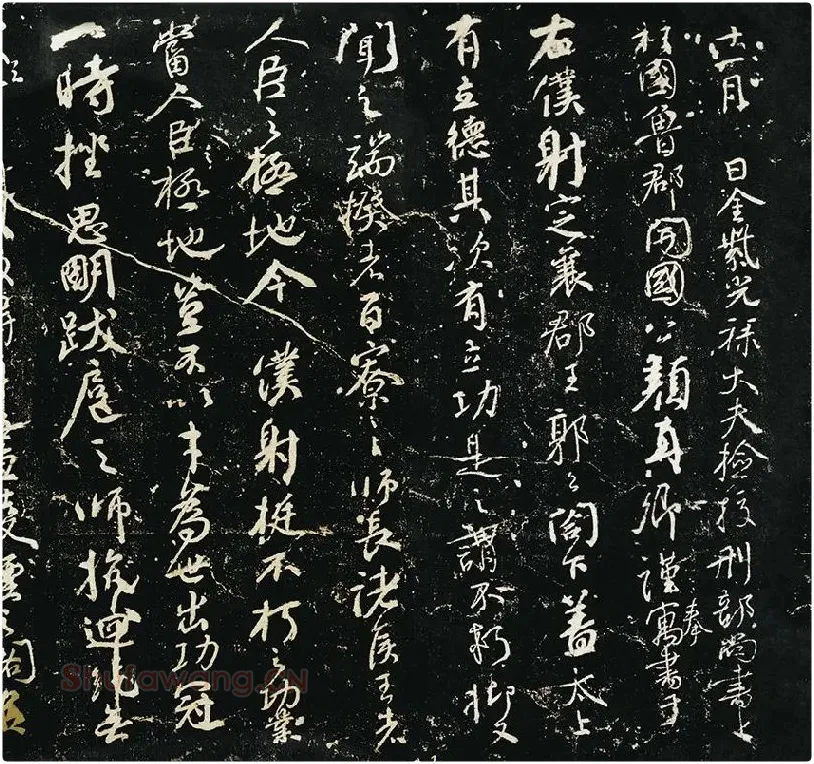 十一月 日金紫光祿大夫檢校刑部尚書上
柱國魯郡開國公顏真卿謹奉寓書于
右僕射定襄郡王郭公閣下蓋太上
有立德其次有立功是之謂不朽抑又
聞之端揆者百寮之師長諸侯王者
人臣之極地今 僕射挺不朽之功業
當人臣極地豈不以才為世出功冠
一時挫思明跋扈之師抗迴紇無
Shufawang.CN